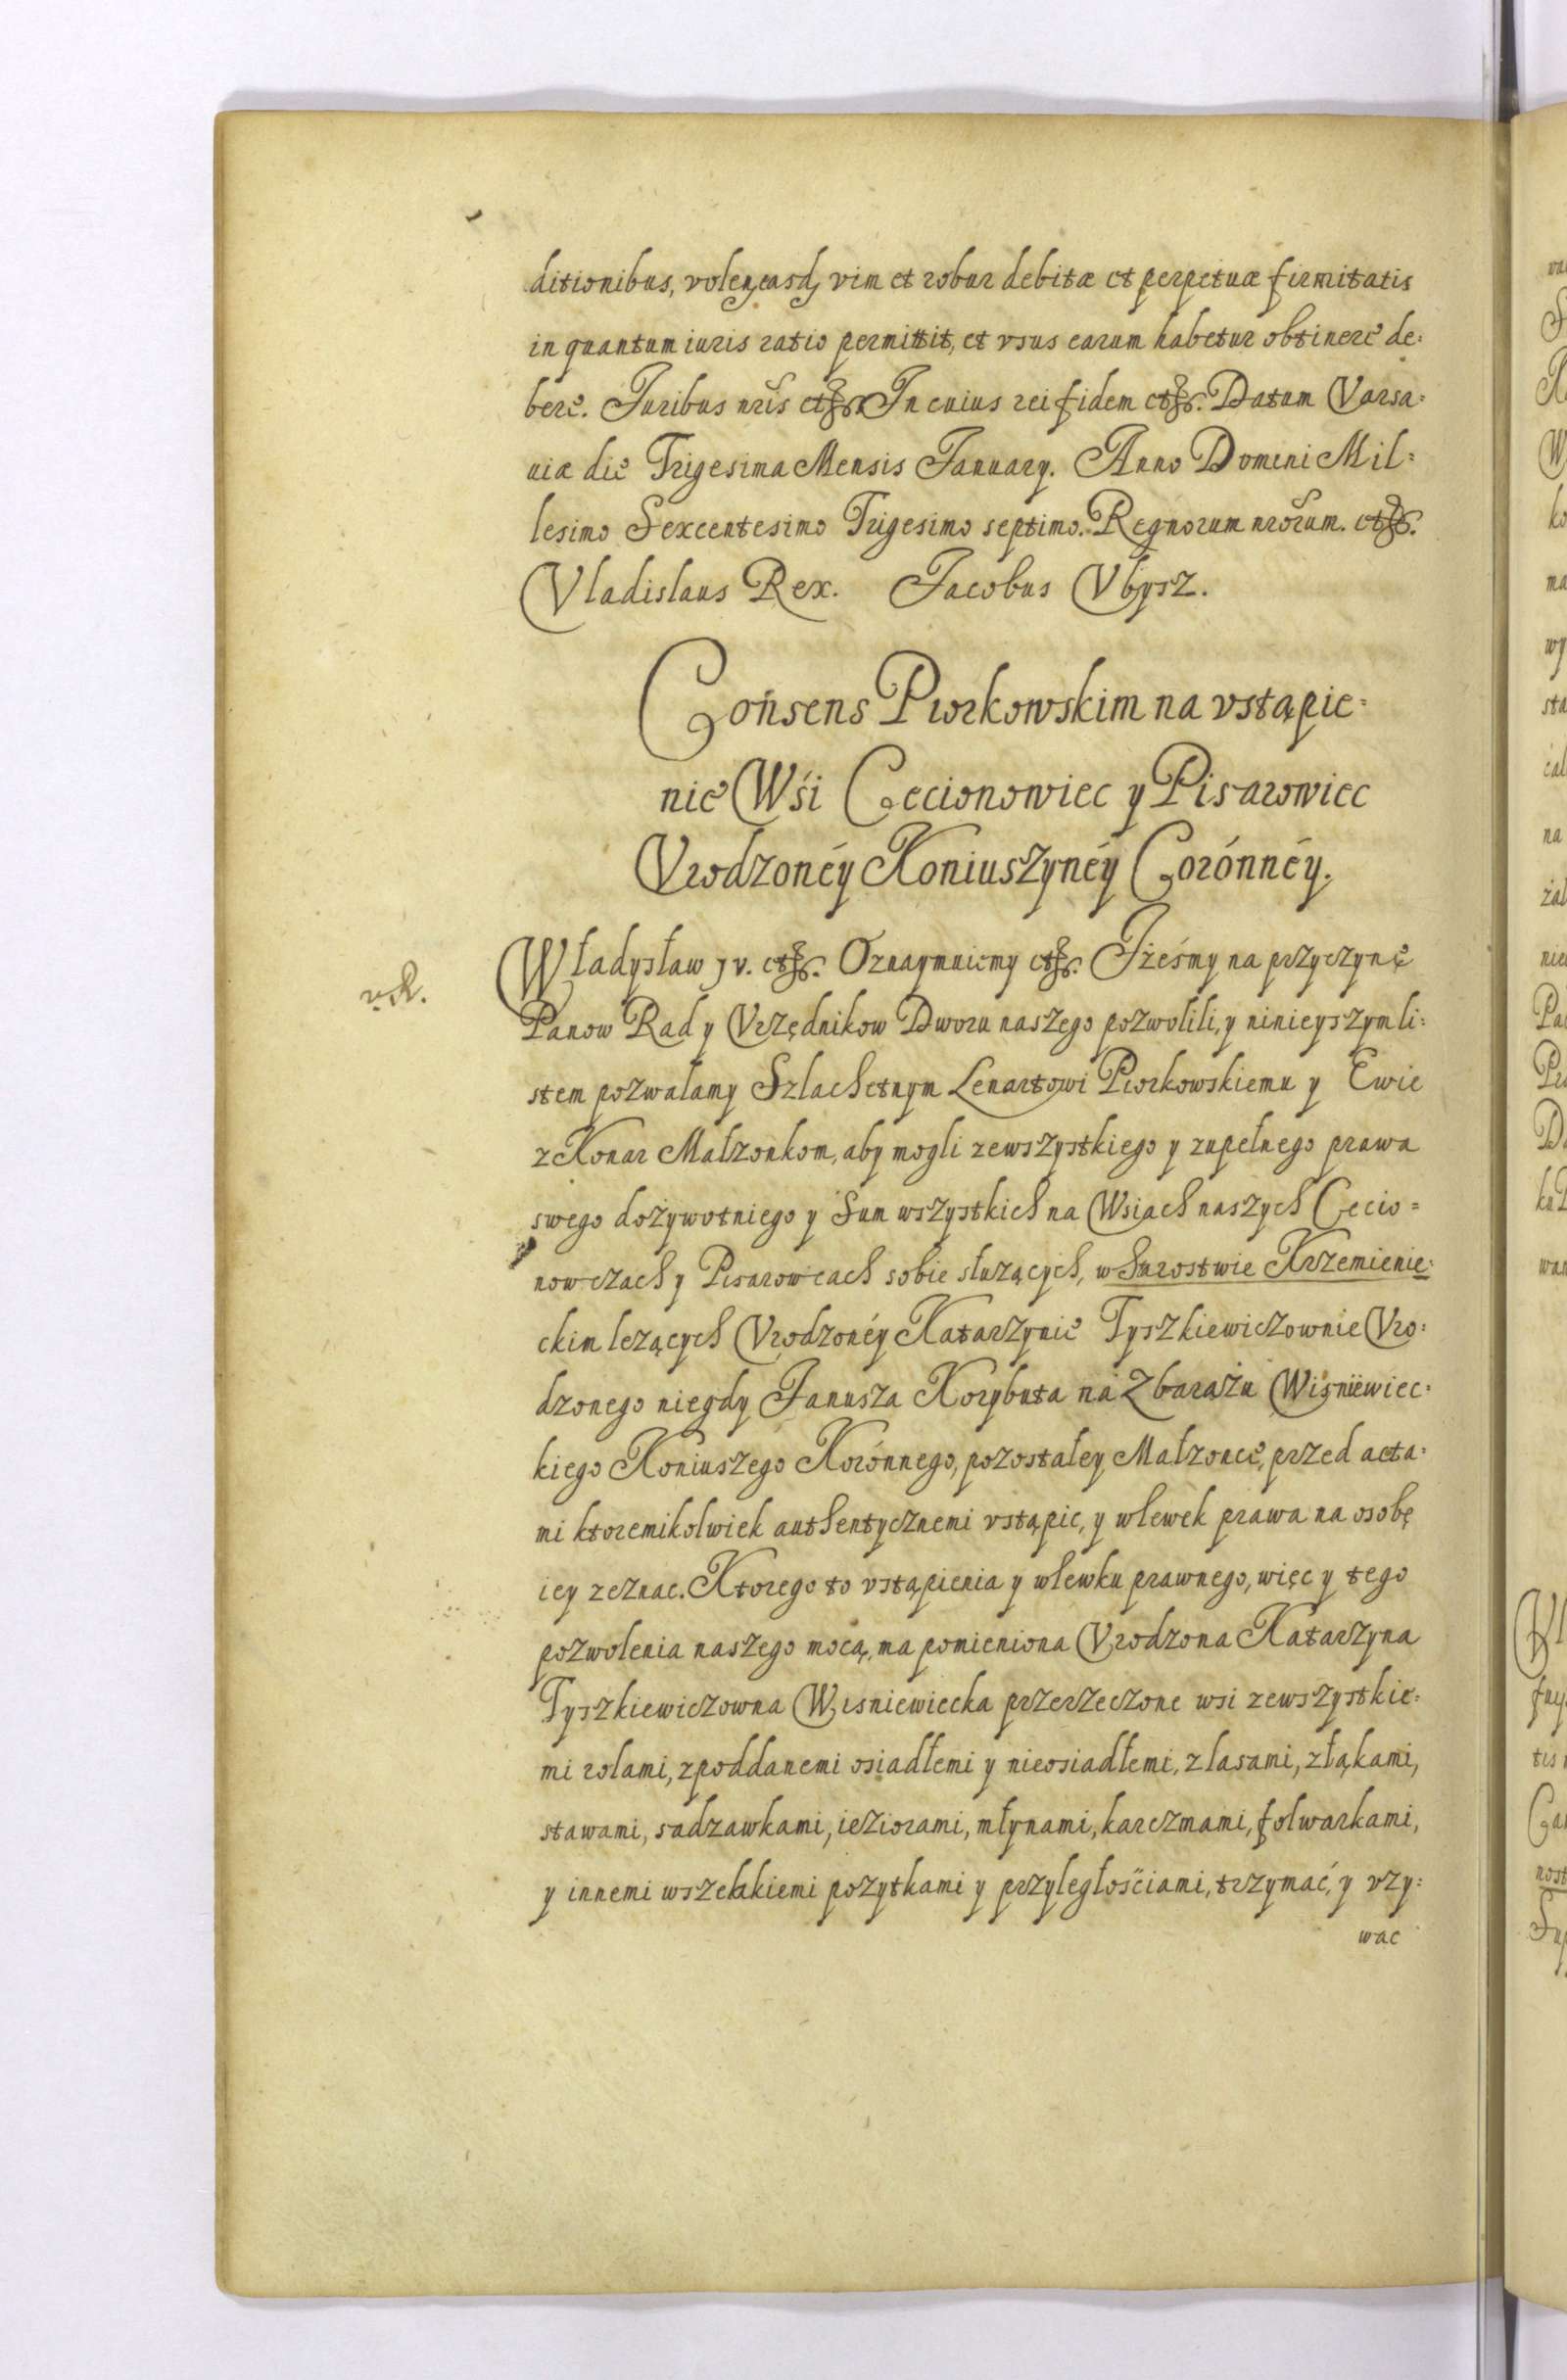 ditionibus, volen, easq, vim et robur debitæ et perpetuæ firmitatis
in quantum iuris ratio permittit, et vsus earum habetur obtinere de:
bere. Juribus nris etc. In cuius rei fidem etc. Datum Varsa:
uiæ die Trigesima Mensis January. Anno Domini Mil:
lesimo Sexcentesimo Trigesimo septimo. Regnorum nrorum. etc.
Vladislaus Rex. Jacobus Vbysz.
Consens Piorkowskim na vstąpie:
nie Wśi Cecionowiec y Pisarowiec
Vrodzonéy Koniuszynéy Corónnéy.
Władysław jv. etc. Oznaymuiemy etc. Jżeśmy na przyczynę
Panow Rad y Vrzędnikow Dworu naszego pozwolili, y ninieyszym li:
stem pozwalamy Szlachetnym Lenartowi Piorkowskiemu y Ewie
z Konar Małzonkom, aby mogli zewszystkiego y zupełnego prawa
swego dożywotniego y Sum wszystkich na Wsiach naszych Cecio=
nowczach y Pisarowcach sobie służących, w Starostwie Krzemienie:
ckim lezących Vrodzonéy Katarzynie Tyszkiewiczownie Vro:
dzonego niegdy Janusza Korybuta na Zbarażu Wisniewiec:
kiego Koniuszego Korónnego, pozostałey Małzonce, przed acta:
mi ktoremikolwiek authentycznemi vstąpic, y wlewek prawa na osobę
iey zeznac. Ktorego to vstąpienia y wlewku prawnego, więc y tego
pozwolenia naszego mocą, ma pomieniona Vrodzona Katarzyna
Tyszkiewiczowna Wisniewiecka przerzeczone wsi zewszystkie:
mi rolami, zpoddanemi osiadłemi y nieosiadłemi, z lasami, złąkami,
stawami, sadzawkami, ieziorami, młynami, karczmami, folwarkami,
y innemi wszelakiemi pozytkami y przyległościami, trzymać, y vzy:
wac